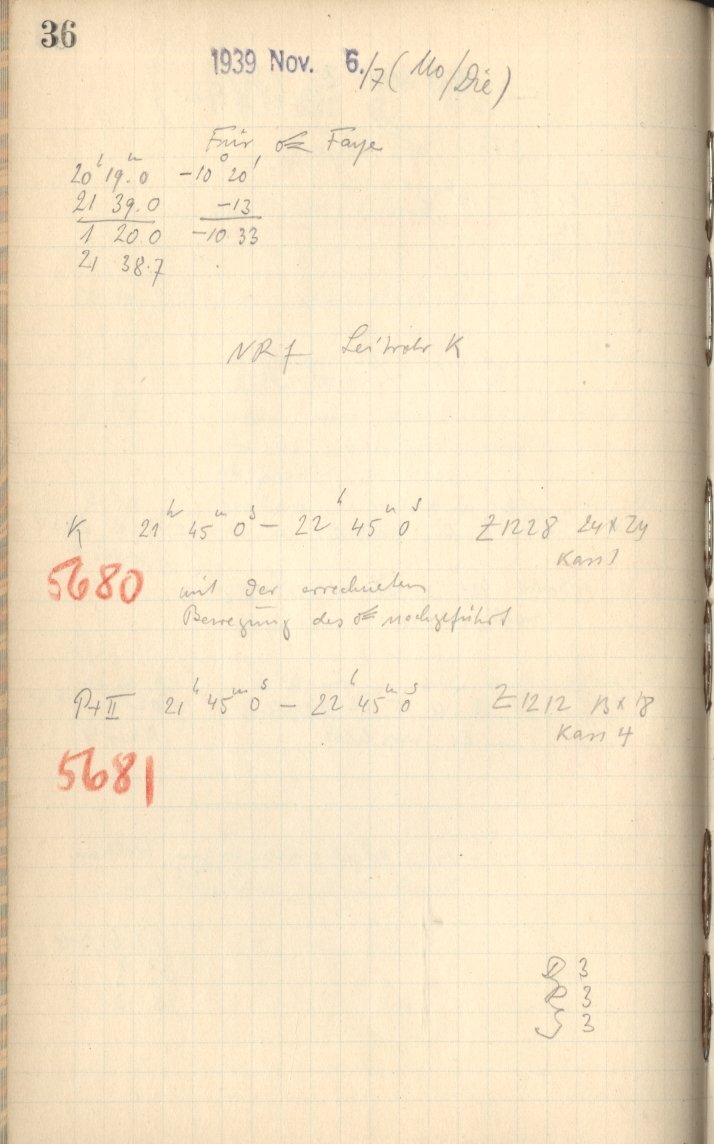 36
1939 Nov. 6./7 (Mo/Die)
Für ☄ Faye
20ʰ 19ᵐ.0 -10° 20'
21 39.0 -13
1 20 0 -10 33
21 38.7
NR f Leitrohr K
K 21ʰ 45ᵐ 0ˢ – 22ʰ 45ᵐ 0ˢ Z1228 24 x 24
Kass 1
5680 mit der errechneten
Bewegung des ☄ nachgeführt
P+II 21ʰ 45ᵐ 0ˢ – 22ʰ 45ᵐ 0ˢ Z1212 13 x 18
Kass 4
5681
3
R 3
S 3